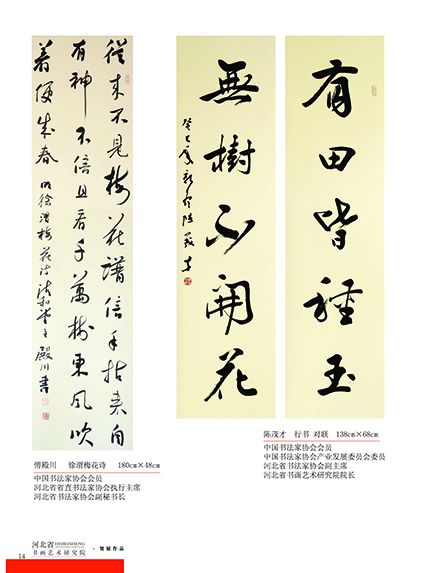 從来不見梅花譜信手拈来自
有神不信且看千萬樹東風吹
着便成春 明徐渭梅花诗 殿川書
有田皆種玉
無樹不開花
癸巳夏
傅殿川 徐渭梅花诗 180cm×48cm
中国书法家协会会员
河北省省直书法家协会执行主席
河北省书法家协会副秘书长
陈茂才 行书 对联 138cm×68cm
中国书法家协会会员
中国书法家协会产业发展委员会委员
河北省书法家协会副主席
河北省书画艺术研究院院长
14
河北省 HEBEISHENG
书画艺术研究院 · 贺展作品